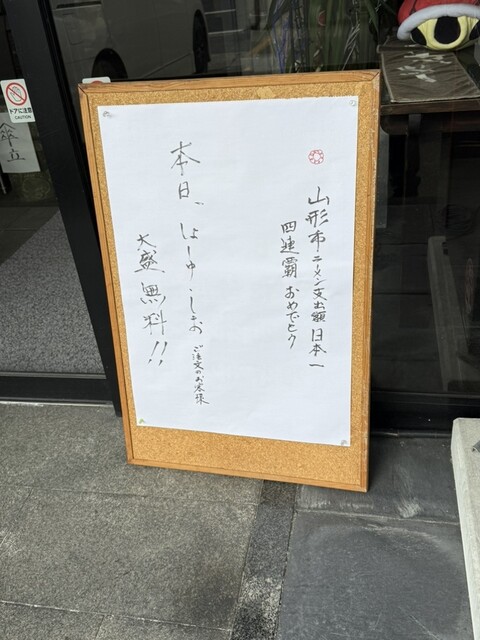 山形市ラーメン支出額日本一
四連覇おめでとう
本日、しょーゆ・しお ご注文のお客様
大盛無料!!
ドアに注意
CAUTION
傘立